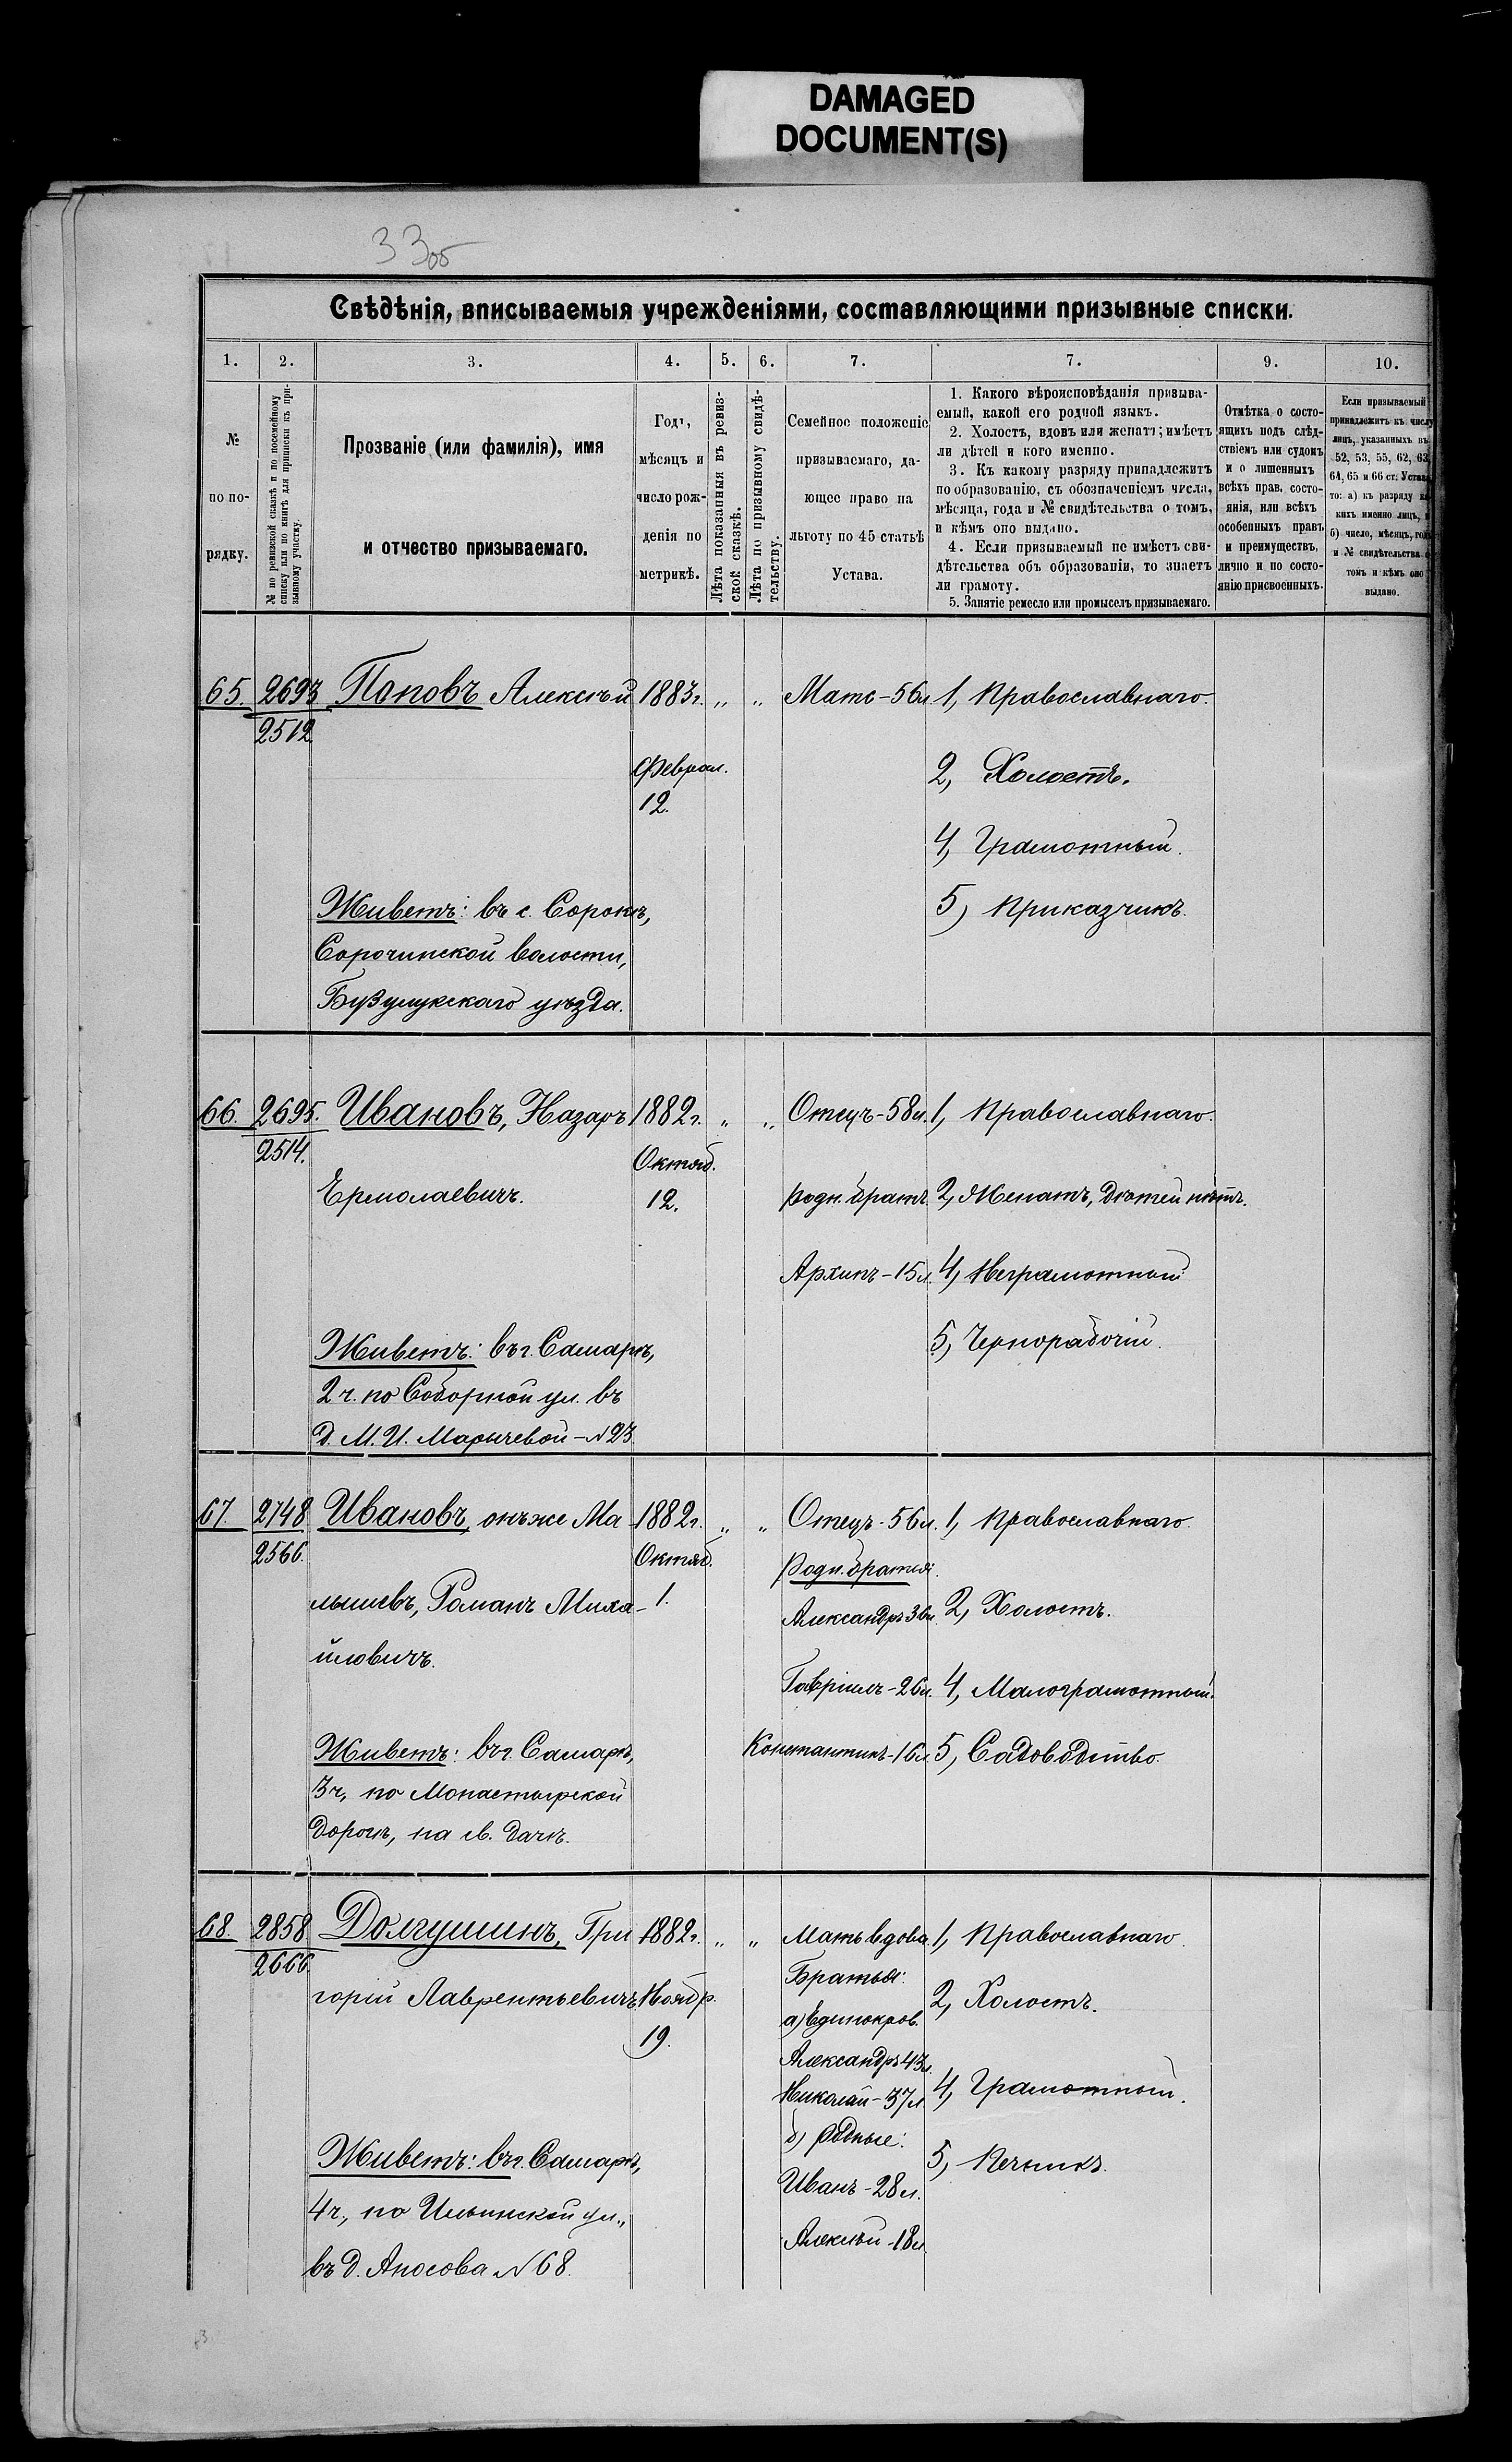 DAMAGED
DOCUMENT(S)
33об
Свѣдѣнія, вписываемыя учрежденіями, составляющими призывные списки.
1. 2. 3. 4. 5. 6. 7. 7. 9. 10.
№
по по-
рядку.
№ по ревизской сказкѣ и по посемейному
списку или по книгѣ для приписки къ при-
зывному участку.
Прозваніе (или фамилія), имя
и отчество призываемаго.
Годъ,
мѣсяцъ и
число рож-
денія по
метрикѣ.
Лѣта показанныя въ ревиз-
ской сказкѣ.
Лѣта по призывному свидѣ-
тельству.
Семейное положеніе
призываемаго, да-
ющее право на
льготу по 45 статьѣ
Устава.
1. Какого вѣроисповѣданія призыва-
емый, какой его родной языкъ.
2. Холостъ, вдовъ или женатъ; имѣетъ
ли дѣтей и кого именно.
3. Къ какому разряду принадлежитъ
по образованію, съ обозначеніемъ числа,
мѣсяца, года и № свидѣтельства о томъ,
и кѣмъ оно выдано.
4. Если призываемый не имѣетъ сви-
дѣтельства объ образованіи, то знаетъ
ли грамоту.
5. Занятіе ремесло или промыселъ призываемаго.
Отмѣтка о состо-
ящихъ подъ слѣд-
ствіемъ или судомъ
и о лишенныхъ
всѣхъ прав, состо-
янія, или всѣхъ
особенныхъ правъ
и преимуществъ,
лично и по состо-
янію присвоенныхъ.
Если призываемый
принадлежитъ къ числу
лицъ, указанныхъ въ
52, 53, 55, 62, 63,
64, 65 и 66 ст. Устава
то: а) къ разряду ка-
кихъ именно лицъ, и
б) число, мѣсяцъ, годъ
и № свидѣтельства о
томъ и кѣмъ оно
выдано.
65. 2693 Поповъ Алексѣй 1883г. „ „ Мать-56л 1, Православнаго.
2512.
Феврал. 2, Холостъ.
12.
4, Грамотный.
Живетъ: въ с. Сорокѣ, 5) Приказчикъ.
Сорочинской волости,
Бузулукскаго уѣзда.
66. 2695. Ивановъ, Назаръ 1882г. „ „ Отецъ-58л. 1, Православнаго.
2514. Октяб.
Ермолаевичъ. 12. родн. братъ 2, Женатъ, дѣтей нѣтъ.
Архипъ-15л. 4, Неграмотный
Живетъ: въ г. Самарѣ, 5, Чернорабочій.
2 ч. по Соборной ул. въ
д. М. И. Марычевой-№23.
67. 2748 Ивановъ, онъ же Ма- 1882г. „ „ Отецъ-56л. 1, Православнаго.
2566. Октяб. Родн. братья:
лышевъ, Романъ Миха- 1. Александръ 36л. 2, Холостъ.
йловичъ.
Гавріилъ-26л. 4, Малограмотный.
Живетъ: въ г. Самарѣ, Константинъ-16л. 5, Садоводство.
3ч, по Монастырской
дорогѣ, на св. дачѣ.
68. 2858 Долгушинъ, Гри- 1882г. „ „ Мать вдова. 1, Православнаго.
2666. Братья:
горій Лаврентьевичъ Ноябр. а) Единокров. 2, Холостъ.
19. Александръ 43л.
Николай-37л. 4, Грамотный.
б) родные:
Живетъ: въ г. Самарѣ, Иванъ-28л. 5, Печникъ.
4ч., по Ильинской ул., Алексѣй-18л
въ д. Аносова №68.